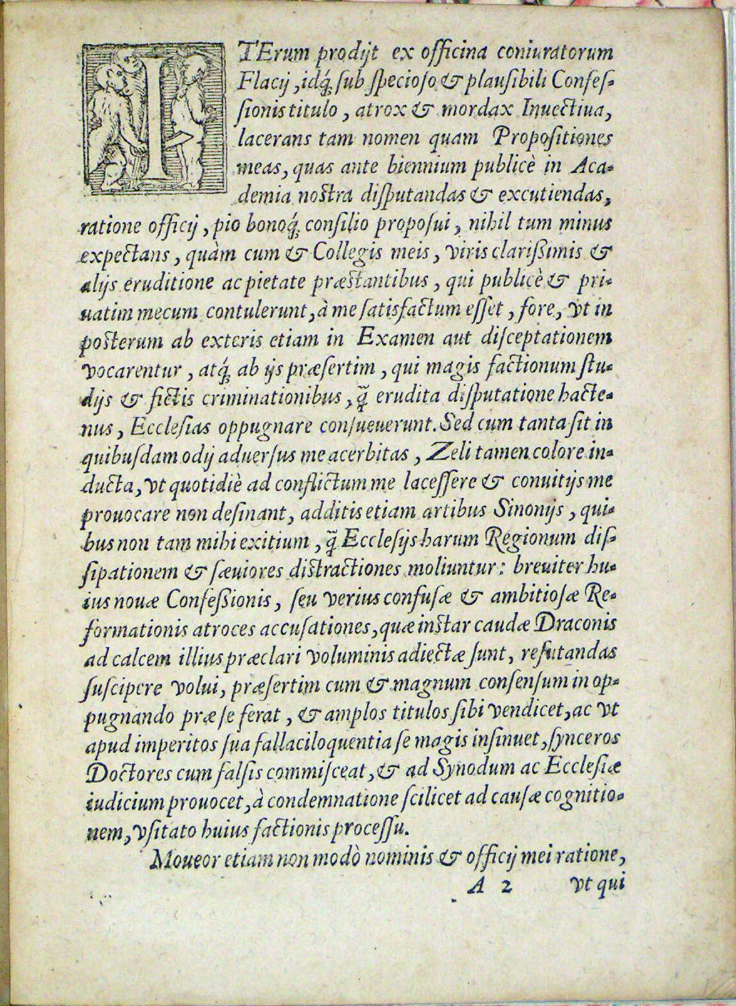 ITErum prodijt ex officina coniuratorum
Flacij, idq́; sub specioso & plausibili Confes-
sionis titulo, atrox & mordax Inuectiua,
lacerans tam nomen quam Propositiones
meas, quas ante biennium publicè in Aca-
demia nostra disputandas & excutiendas,
ratione officij, pio bonoq́; consilio proposui, nihil tum minus
expectans, quàm cum & Collegis meis, viris clarißimis &
alijs eruditione ac pietate præstantibus, qui publicè & pri-
uatim mecum contulerunt, à me satisfactum esset, fore, vt in
posterum ab exteris etiam in Examen aut disceptationem
vocarentur, atq́; ab ijs præsertim, qui magis factionum stu-
dijs & fictis criminationibus, q̃ erudita disputatione hacte-
nus, Ecclesias oppugnare consueuerunt. Sed cum tanta sit in
quibusdam odij aduersus me acerbitas, Zeli tamen colore in-
ducta, vt quotidiè ad conflictum me lacessere & conuitijs me
prouocare non desinant, additis etiam artibus Sinonijs, qui-
bus non tam mihi exitium, q̃ Ecclesijs harum Regionum dis-
sipationem & sæuiores distractiones moliuntur: breuiter hu-
ius nouæ Confeßionis, seu verius confusæ & ambitiosæ Re-
formationis atroces accusationes, quæ instar caudæ Draconis
ad calcem illius præclari voluminis adiectæ sunt, refutandas
suscipere volui, præsertim cum & magnum consensum in op-
pugnando præ se ferat, & amplos titulos sibi vendicet, ac vt
apud imperitos sua fallaciloquentia se magis insinuet, synceros
Doctores cum falsis commisceat, & ad Synodum ac Ecclesiæ
iudicium prouocet, à condemnatione scilicet ad causæ cognitio-
nem, vsitato huius factionis processu.
Moueor etiam non modò nominis & officij mei ratione,
A 2 vt qui